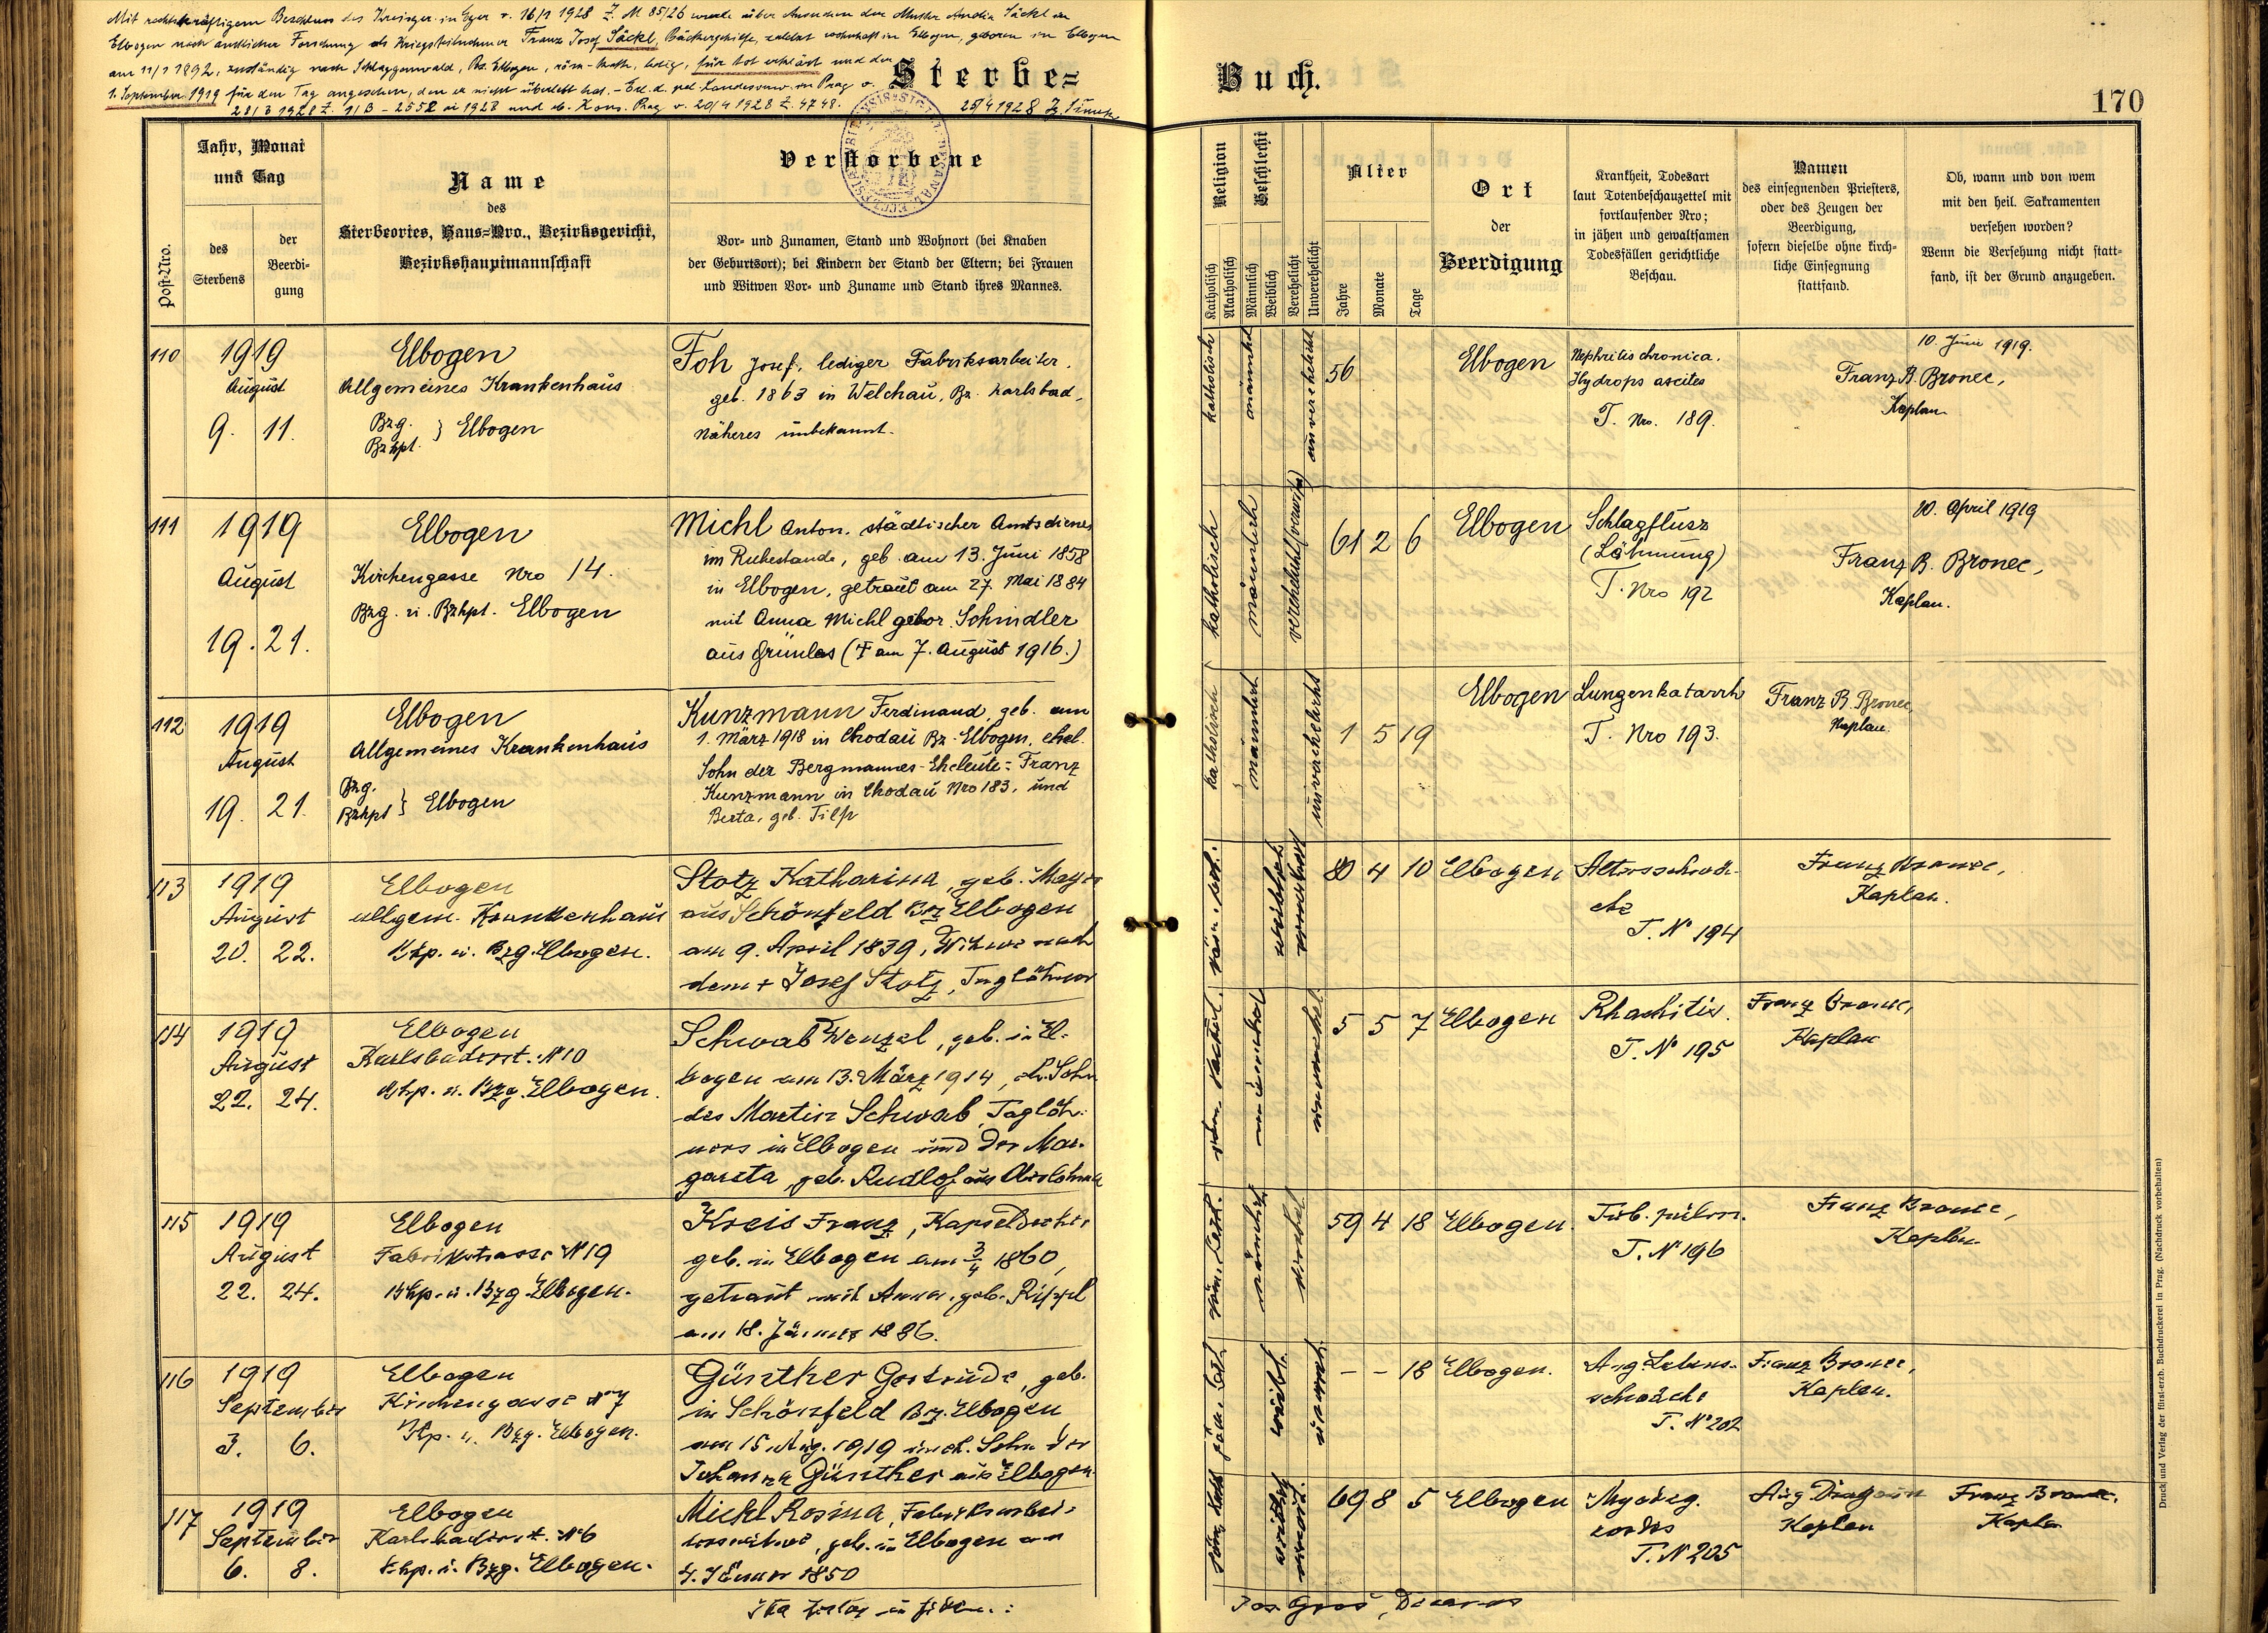 Mit rechtskräftigem Beschluss des Kreisger. in Eger v. 16/1 1928 Z. M 85/26 wurde über Ansuchen der Mutter Säckl in
Elbogen nach amtlicher Forschung als Kriegsteilnehmer Franz Josef Säckl, Bäckergehilfe, zuletzt wohnhaft in Elbogen, geboren in Elbogen
am 11/1 1892, zuständig nach Schlaggenwald, Bz. Elbogen, röm-kath., ledig, für tot erklärt und der
1. September 1919 für den Tag angesehen, den er nicht überlebt hat. - Erl. d. pol. Landesverw. in Prag v.
28/3 1928 Z. 11/B - 2552 ai 1928 und eb. Kons. Prag v. 20/4 1928 Z. 4748. 25/4 1928
Sterbe= Buch.
170
Post-Nro.
Jahr, Monat
und Tag
des
Sterbens
der
Beerdi-
gung
Name
des
Sterbeortes, Haus=Nro., Bezirksgericht,
Bezirkshauptmannschaft
Verstorbene
Vor- und Zunamen, Stand und Wohnort (bei Knaben
der Geburtsort); bei Kindern der Stand der Eltern; bei Frauen
und Witwen Vor- und Zuname und Stand ihres Mannes.
Religion
Katholisch
Akatholisch
Geschlecht
Männlich
Weiblich
Verehelicht
Unverehelicht
Alter
Jahre
Monate
Tage
Ort
der
Beerdigung
Krankheit, Todesart
laut Totenbeschauzettel mit
fortlaufender Nro;
in jähen und gewaltsamen
Todesfällen gerichtliche
Beschau.
Namen
des einsegnenden Priesters,
oder des Zeugen der
Beerdigung,
sofern dieselbe ohne kirch-
liche Einsegnung
stattfand.
Ob, wann und von wem
mit den heil. Sakramenten
versehen worden?
Wenn die Versehung nicht statt-
fand, ist der Grund anzugeben.
110
1919
August
9. 11.
Elbogen
Allgemeines Krankenhaus
Bzg.
Bzhpt. } Elbogen
Foh Josef, lediger Fabriksarbeiter,
geb. 1863 in Welchau, Bz. Karlsbad,
näheres unbekannt.
katholisch
männlich
unverehelicht
56
Elbogen
Nephritis chronica.
Hydrops ascites
T. Nro. 189.
Franz B. Bronec,
Kaplan
10. Juni 1919.
111
1919
August
19. 21.
Elbogen
Kirchengasse Nro 14.
Bzg. u. Bzhpt. Elbogen
Michl Anton, städtischer Amtsdiener
im Ruhestande, geb. am 13. Juni 1858
in Elbogen, getraut am 27. Mai 1884
mit Anna Michl gebor. Schindler
aus Grünlas († am 7. August 1916.)
katholisch
männlich
verehelicht (verwitw)
61 2 6
Elbogen
Schlagflusz
(Lähmung)
T. Nro 192
Franz B. Bronec,
Kaplan.
20. April 1919
112
1919
August
19. 21.
Elbogen
Allgemeines Krankenhaus
Bzg.
Bzhpt } Elbogen
Kunzmann Ferdinand, geb. am
1. März 1918 in Chodau Bz. Elbogen, ehel.
Sohn der Bergmannes-Eheleute: Franz
Kunzmann in Chodau Nro 183, und
Berta, geb. Tilp
katholisch
männlich
unverehelicht
1 5 19
Elbogen
Lungenkatarrh
T. Nro 193.
Franz B. Bronec,
Kaplan.
113
1919
August
20. 22.
Elbogen
allgem. Krankenhaus
Bhp. u. Bzg. Elbogen.
Stotz Katharina, geb. Mayer
aus Schönfeld Bz Elbogen
am 9. April 1839, Witwe nach
dem † Josef Stotz, Taglöhner
weiblich
80 4 10
Elbogen
Altersschwä-
che
T. N° 194
Franz Bronec,
Kaplan.
114
1919
August
22. 24.
Elbogen
Karlsbaderst. N°10
Bhp. u. Bzg. Elbogen.
Schwab Wenzel, geb. in El-
bogen am 13. März 1914, eh. Sohn
des Martin Schwab, Taglöh-
ners in Elbogen und der Mar-
gareta, geb. Rudlof aus
männlich
5 5 7
Elbogen
Rhachitis.
T. N° 195
Franz Bronec,
Kaplan
115
1919
August
22. 24.
Elbogen
Fabrikstrasse N°19
Bhp. u. Bzg. Elbogen.
Kreis Franz,
geb. in Elbogen am 3/4 1860,
getraut mit Anna, geb.
am 18. Jänner 1886.
röm. kath.
männlich
59 4 18
Elbogen.
Tub. pulm.
T. N° 196
Franz Bronec,
Kaplan
116
1919
September
3. 6.
Elbogen
Kirchengasse N° 7
Bhp. u. Bzg. Elbogen.
Günther Gertrude, geb.
in Schönfeld Bz. Elbogen
am 15. Aug. 1919 uneh. Sohn der
Johanna Günther aus Elbogen
röm. kath
weibl.
– – 18
Elbogen.
Ang. Lebens-
schwäche
T. N° 202
Franz Bronec,
Kaplan.
117
1919
September
6. 8.
Elbogen
Karlsbaderst. N°6
Bhp. u. Bzg. Elbogen.
Michl Rosina, Fabriksarbei-
terswitwe, geb. in Elbogen am
4. Jänner 1850
röm. kath
weiblich
69 8 5
Elbogen
Myodeg.
cordis
T. N 205
Aug Dragoun
Kaplan
Franz Bronec,
Kaplan
Jos. Groš, Decanus
Druck und Verlag der fürst-erzb. Buchdruckerei in Prag. (Nachdruck vorbehalten)